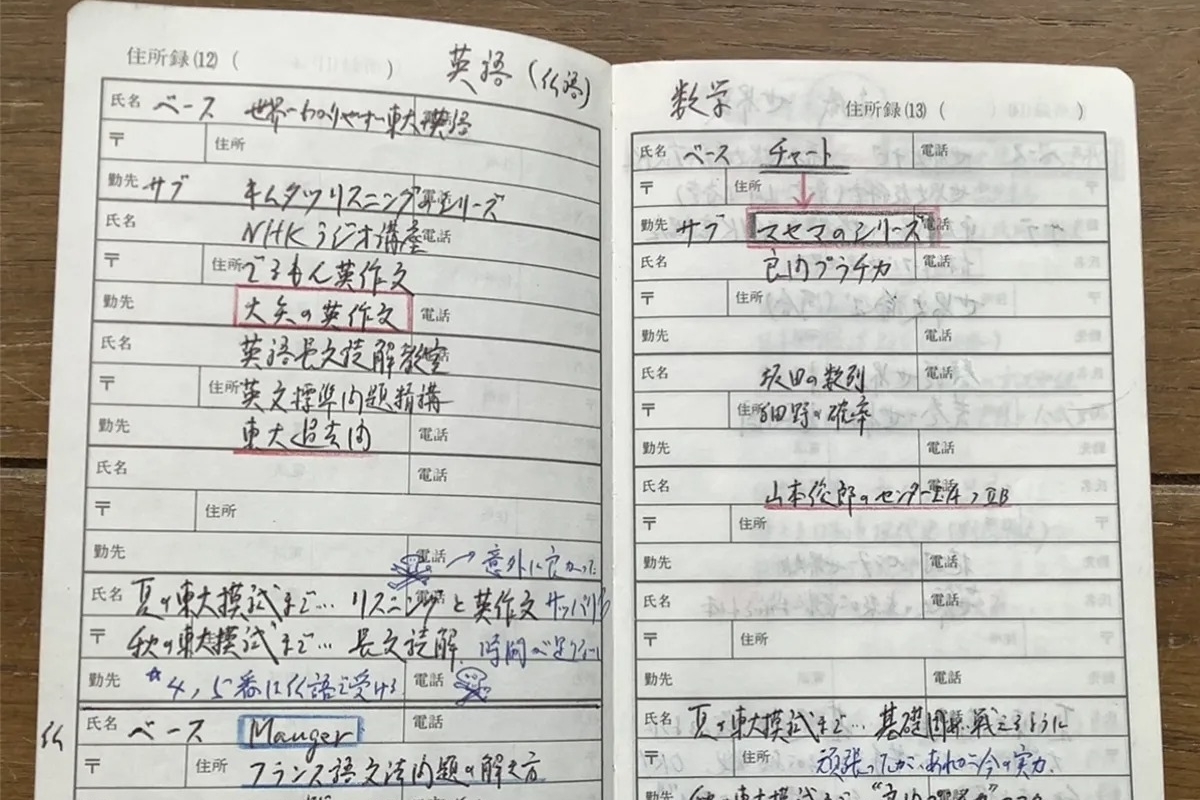 住所録(12) ( ) 英語 (仏語)
氏名 ベース 世界一わかりやすい東大英語
〒 住所
勤先 サブ キムタツリスニング シリーズ
氏名 NHKラジオ講座 電話
〒 住所 英作文
勤先 大矢の英作文 電話
氏名 英語長文読解教室
〒 住所 英文標準問題精講
勤先 東大過去問 電話
氏名 電話
〒 住所
勤先 電話 → 意外に良かった
氏名 夏の東大模試まで… リスニングと英作文 サッパリ
〒 秋の東大模試まで… 長文読解 時間が足りない
勤先 ☆4,5番は仏語で受ける 電話
仏 氏名 ベース Mauger 電話
〒 住所 フランス語文法問題の解き方
数学 住所録(13) ( )
氏名 ベース チャート 電話
〒 住所
勤先 サブ マセマのシリーズ 電話
氏名 良問プラチカ 電話
〒 住所
勤先 電話
氏名 坂田の数列 電話
〒 住所 細野の確率
勤先 電話
氏名 山本俊郎のセンター ⅡB 電話
〒 住所
勤先 電話
氏名 電話
〒 住所
勤先 電話
氏名 夏の東大模試まで… 基礎固め 戦えるように
〒 住所 頑張ったが、あれが今の実力.